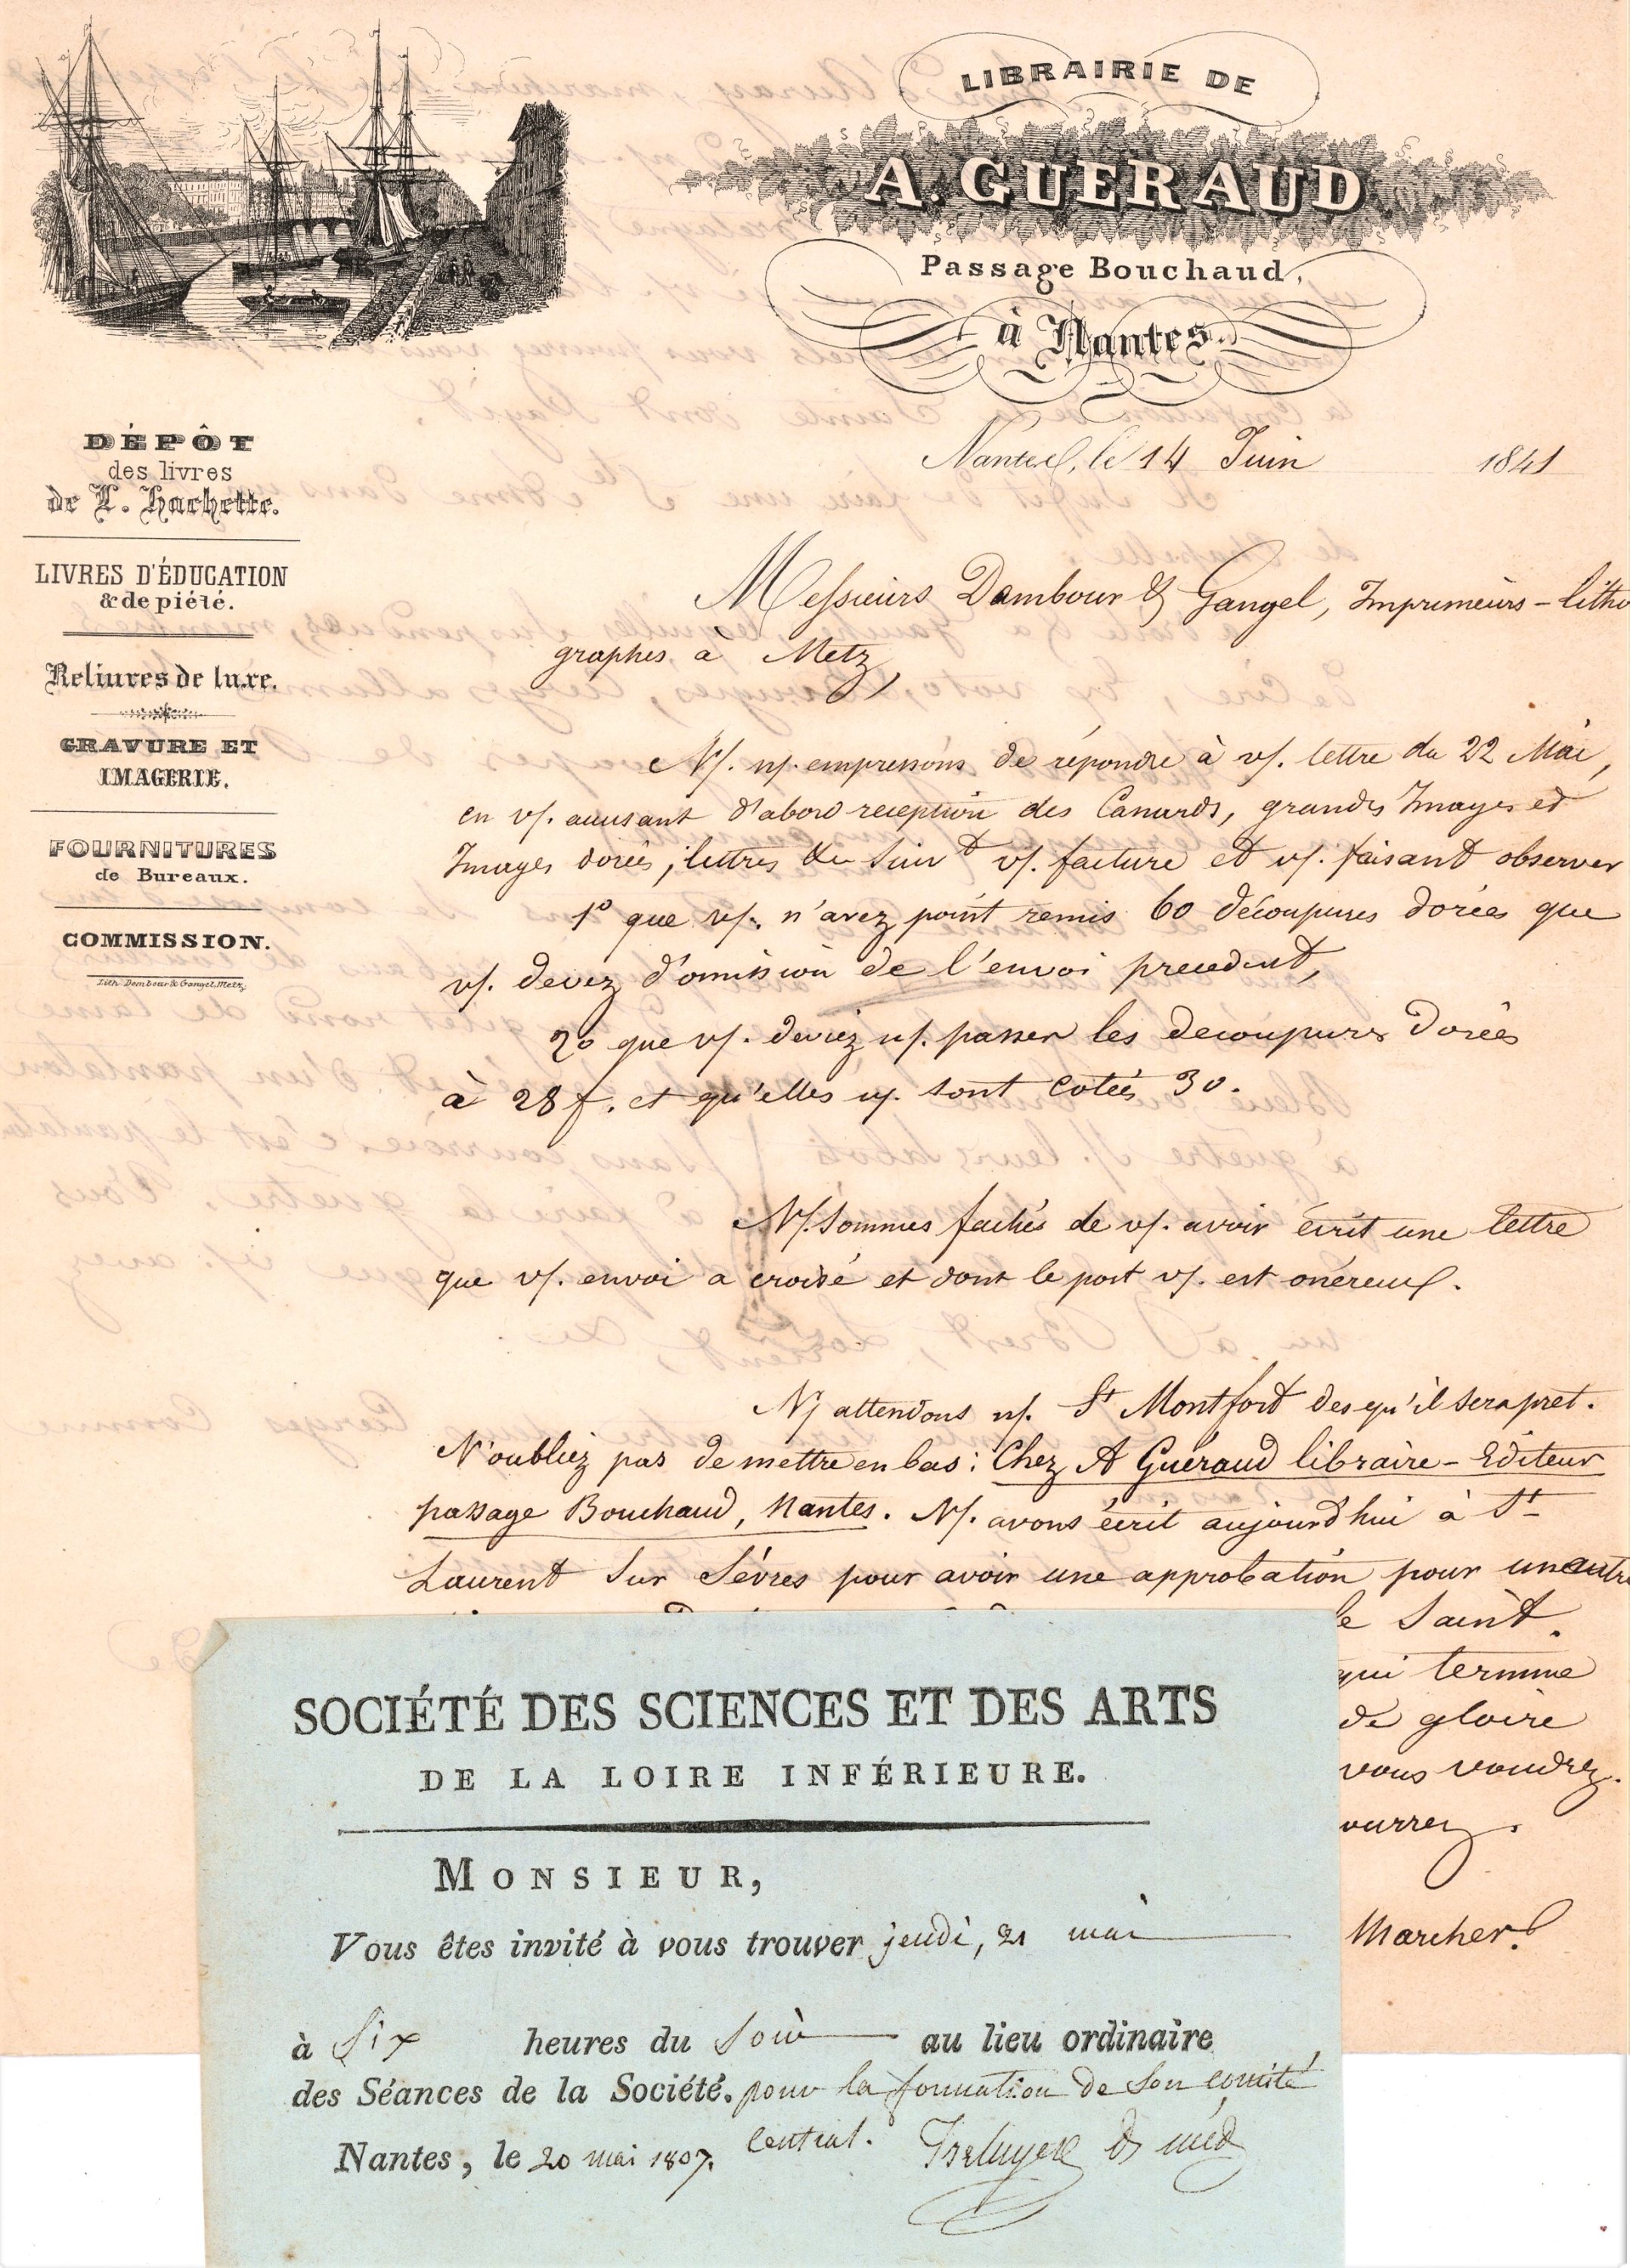 LIBRAIRIE DE
A. GUERAUD
Passage Bouchaud,
à Nantes.
DÉPÔT
des livres
de L. Hachette.
LIVRES D'ÉDUCATION
& de piété.
Reliures de luxe.
GRAVURE ET
IMAGERIE.
FOURNITURES
de Bureaux.
COMMISSION.
Lith. Dembour & Gangel, Metz.
Nantes, le 14 Juin 1841
Messieurs Dembour & Gangel, Imprimeurs-litho
graphes à Metz,
N/. n/. empressons de répondre à v/. lettre du 22 Mai,
en v/. accusant d'abord reception des Canards, grandes Images et
Images dorées, lettres &c suivt v/. facture et v/. faisant observer
1º que v/. n'avez point remis 60 découpures dorées que
v/. devez d'omission de l'envoi precedent,
2º que v/. deviez n/. passer les decoupures dorées
à 28 f. et qu'elles n/. sont cotées 30.
N/. sommes fachés de v/. avoir écrit une lettre
que v/. envoi a croisé et dont le port v/. est onéreux.
N/ attendons n/. St Montfort des qu'il sera pret.
N'oubliez pas de mettre en bas: Chez A Guéraud libraire-Editeur
passage Bouchaud, Nantes. N/. avons écrit aujourd'hui à St
Laurent sur Sèvres pour avoir une approbation pour un autre
le Saint.
qui termine
de gloire
vous voudrez.
ourrez.
Marcher.
SOCIÉTÉ DES SCIENCES ET DES ARTS
DE LA LOIRE INFÉRIEURE.
MONSIEUR,
Vous êtes invité à vous trouver jeudi, 21 mai
à Six heures du Soir au lieu ordinaire
des Séances de la Société. pour la formation de son comité
central.
Nantes, le 20 mai 1807.